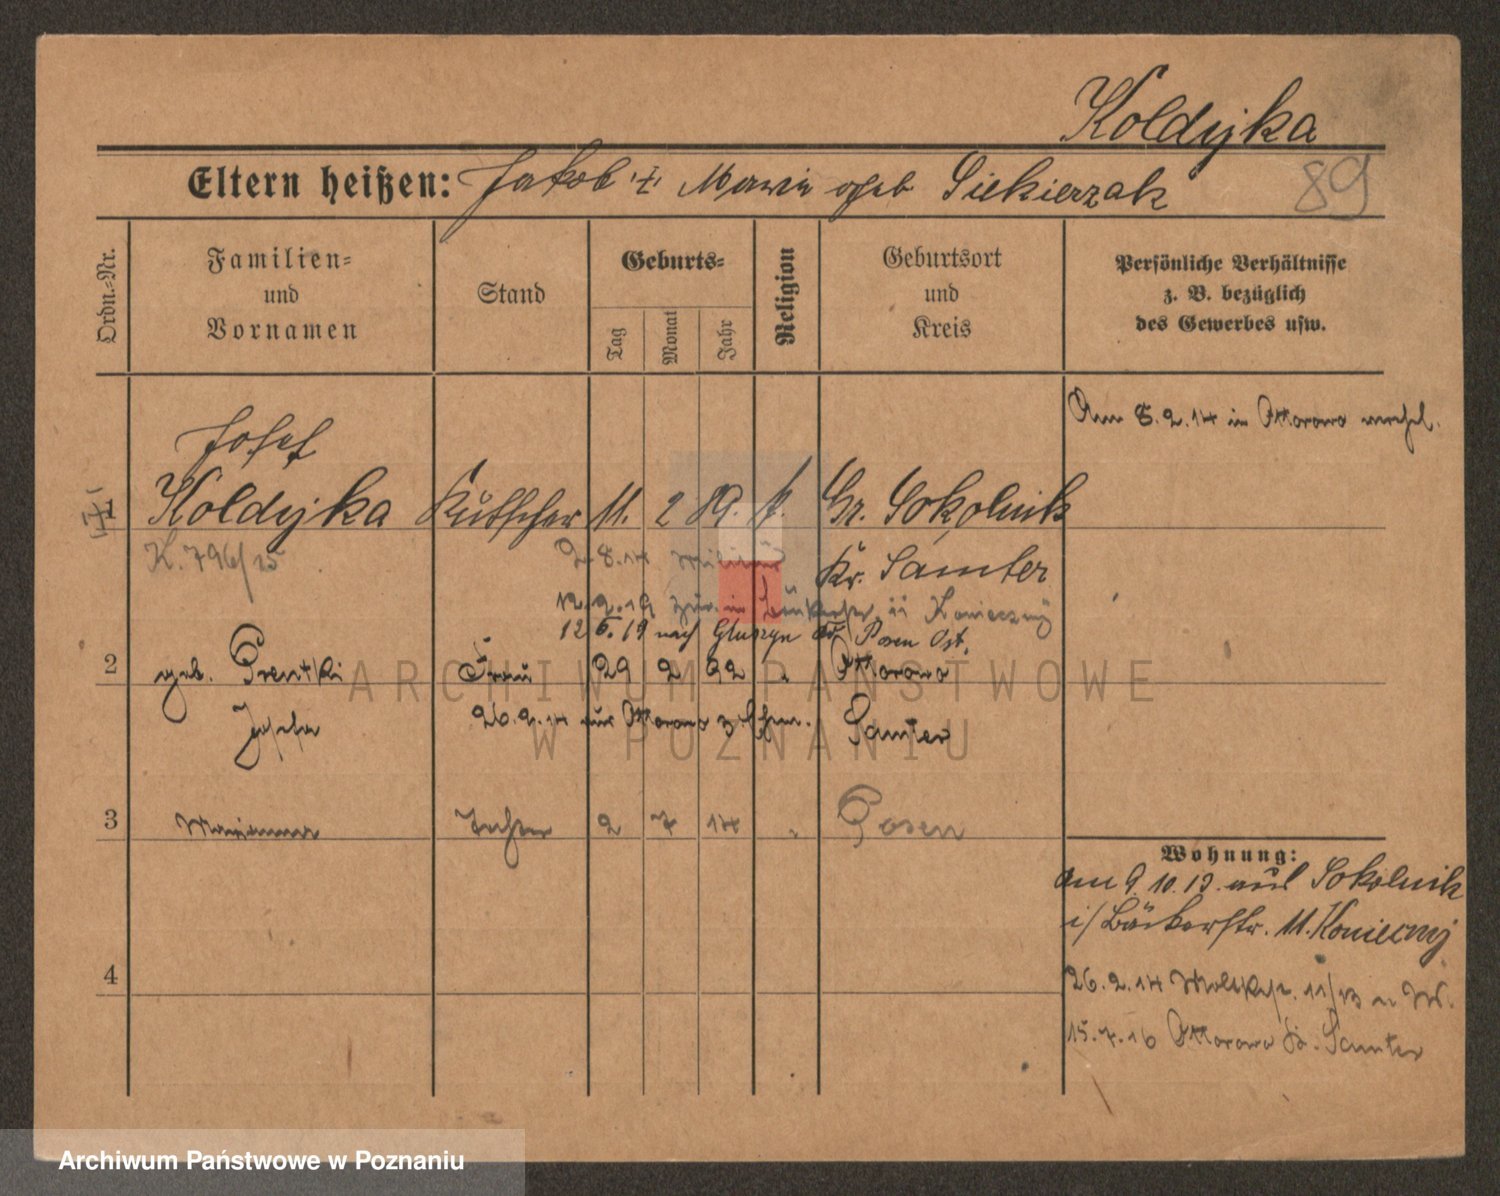 Koldyjka
Eltern heißen: Jakob ✝ Maria geb Siekierzak
89
Ordn.-Nr.
Familien- und Vornamen
Stand
Geburts-
Tag
Monat
Jahr
Religion
Geburtsort und Kreis
Persönliche Verhältnisse
z. B. bezüglich
des Gewerbes usw.
Am 8.2.14 in Ottorowo verehel.
Josef
1 Koldyjka Kutscher 11. 2 89. k. Gr. Sokolnik
K. 796/15 2.8.14 Militär Kr. Samter
12.2.19 zur. in Bäckerstr. 11 Konieczny
12 6.19 nach Gluszyn Kr. Posen Ost.
2 geb. Prentki Frau 29 2 92 " Ottorowo
Josefa 26.2.14 aus Ottorowo z. Ehem. Samter
3 Marianna Tochter 2 7 14 " Posen
Wohnung:
am 9.10.13. aus Sokolnik
i/ Bäckerstr. 11. Konieczny
4
26.2.14 Moltkestr. 11/13 W.
15.7.16 Ottorowo Kr. Samter
ARCHIWUM PAŃSTWOWE
W POZNANIU
Archiwum Państwowe w Poznaniu